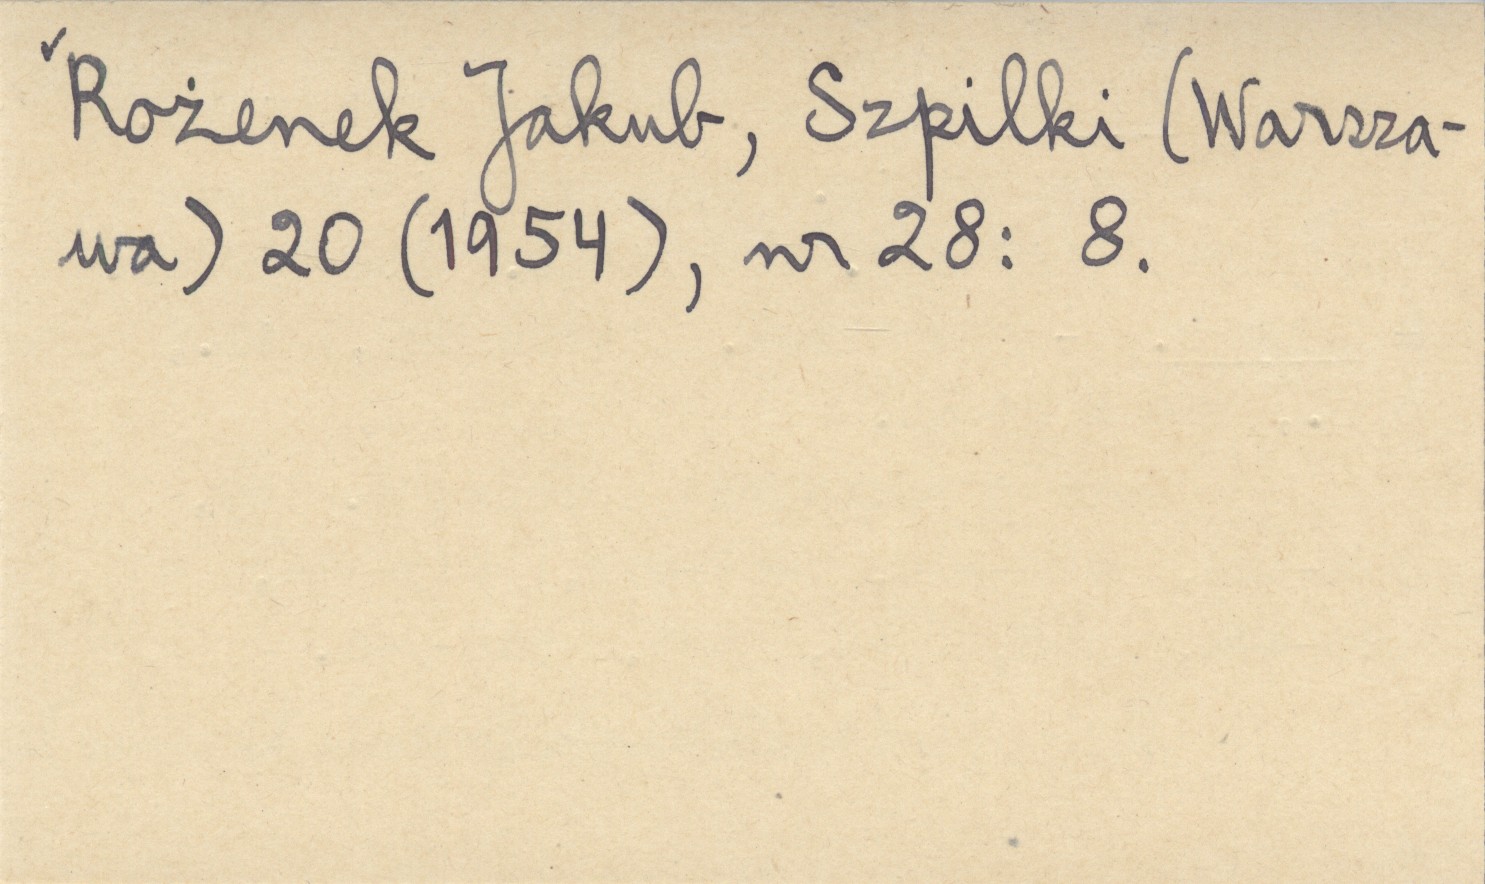 Rożenek Jakub, Szpilki (Warsza-
wa) 20 (1954), nr 28: 8.